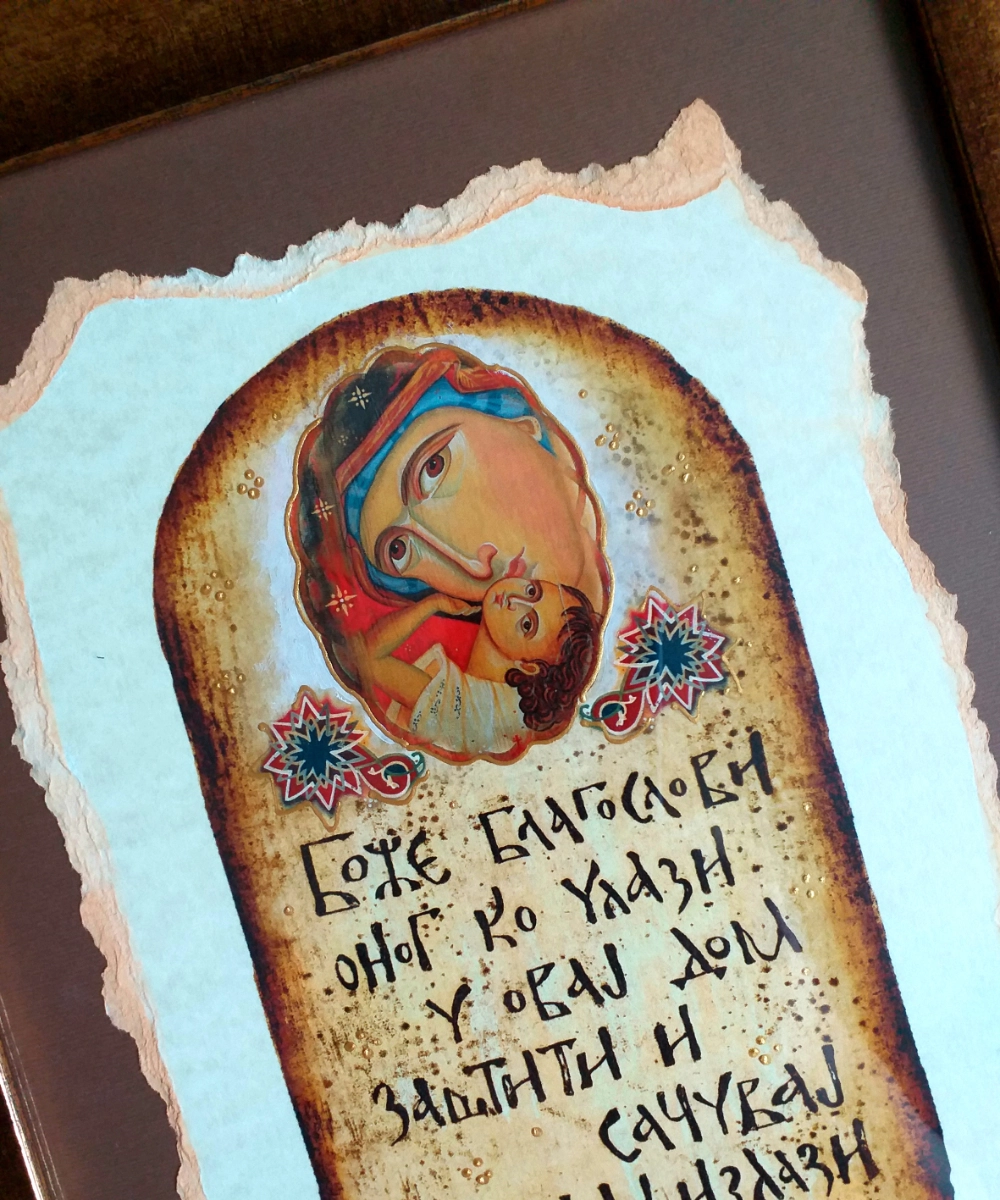 Боже благослови
оног ко улази
у овај дом
заштити и
сачувај
излази